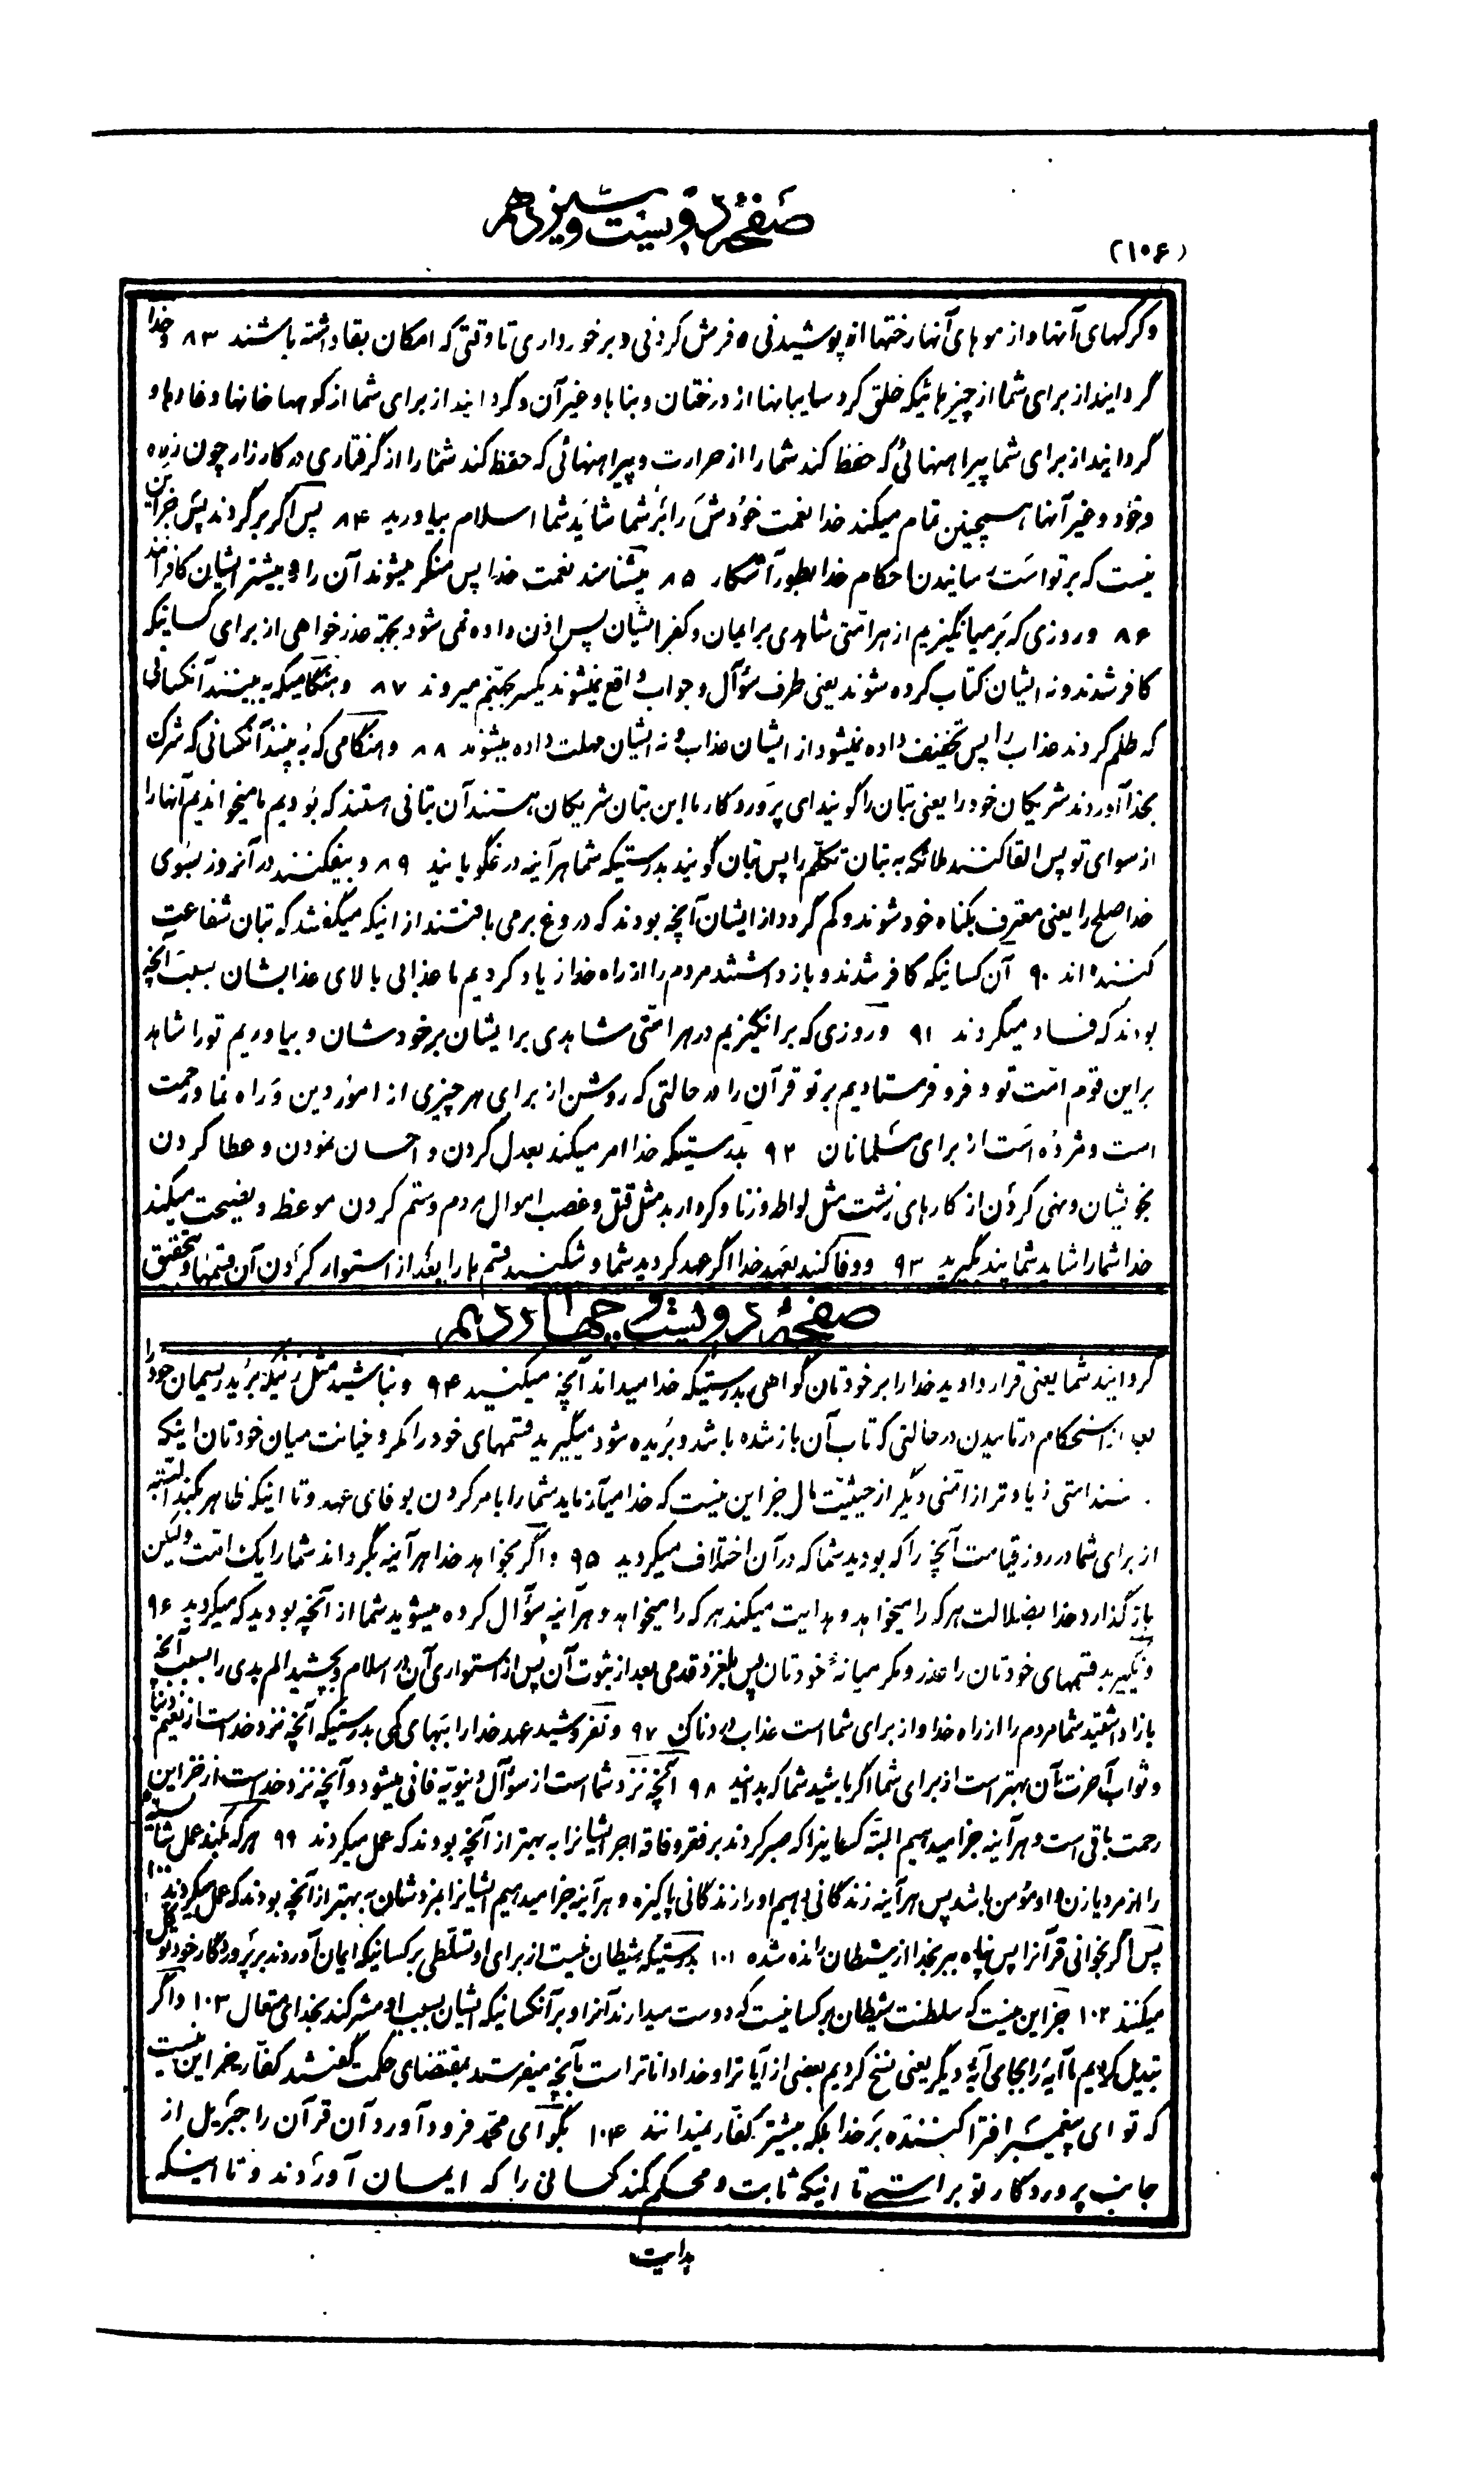 صفحهٔ دویست و سیزدهم
(۱۰۶)
و کرکهای آنها و از موهای آنها رختها از پوشیدنی و فرش کردنی و برخورداری تا وقتی که امکان بقا داشته باشند ۸۳ و خدا
گردانید از برای شما از چیزهائیکه خلق کرد سایبانها از درختان و بناها و غیر آن و گردانید از برای شما از کوهها خانها و غارها و
گردانید از برای شما پیراهنهائی که حفظ کند شما را از حرارت و پیراهنهائی که حفظ کند شما را از گرفتاری در کارزار چون زره
و خود و غیر آنها همچنین تمام میکند خدا نعمت خودش را بر شما شاید شما اسلام بیاورید ۸۴ پس اگر برگردند پس جز این
نیست که بر تو است رسانیدن احکام خدا بطور آشکار ۸۵ میشناسند نعمت خدا پس منکر میشوند آن را و بیشتر ایشان کافرانند
۸۶ و روزی که بر میانگیزیم از هر امتی شاهدی بر ایمان و کفر ایشان پس اذن داده نمی شود بجهة عذرخواهی از برای کسانیکه
کافر شدند و نه ایشان عتاب کرده شوند یعنی طرف سؤال و جواب واقع نمیشوند یکسر بجهنم میروند ۸۷ و هنگامیکه به بینند آنکسانی
که ظلم کردند عذاب را پس تخفیف داده نمیشود از ایشان عذاب و نه ایشان مهلت داده میشوند ۸۸ و هنگامی که به بینند آنکسانی که شرک
بخدا آوردند شریکان خود را یعنی بتان را گویند ای پروردگار ما این بتان شریکان هستند آن بتانی هستند که بودیم ما میخواندیم آنها را
از سوای تو پس القا کنند ملائکه به بتان تکلم را پس بتان گویند بدرستیکه شما هر آینه دروغگویانید ۸۹ و بیفکنند در آنروز بسوی
خدا صلح را یعنی معترف بگناه خود شوند و کم گردد از ایشان آنچه بودند که دروغ بر می بافتند از اینکه میگفتند که بتان شفاعت
کننده اند ۹۰ آن کسانیکه کافر شدند و باز داشتند مردم را از راه خدا زیاد کردیم ما عذابی بالای عذابشان بسبب آنچه
بودند که فساد میکردند ۹۱ و روزی که برانگیزیم در هر امتی شاهدی بر ایشان بر خودشان و بیاوریم تو را شاهد
بر این قوم امت تو و فرو فرستادیم بر تو قرآن را در حالتی که روشن از برای هر چیزی از امور دین و راه نما و رحمت
است و مژده است از برای مسلمانان ۹۲ بدرستیکه خدا امر میکند بعدل کردن و احسان نمودن و عطا کردن
بخویشان و نهی کردن از کارهای زشت مثل لواط و زنا و کردار بد مثل قتل و غصب اموال مردم و ستم کردن موعظه و نصیحت میکند
خدا شما را شاید شما پند بگیرید ۹۳ و وفا کنید بعهد خدا اگر عهد کردید شما و نشکنید قسم ها را بعد از استوار کردن آن قسمها و بتحقیق
صفحهٔ دویست و چهاردهم
گردانید شما یعنی قرار دادید خدا را بر خودتان گواهی بدرستیکه خدا میداند آنچه میکنید ۹۴ و نباشید مثل زنیکه برید ریسمان خود را
بعد از استحکام در تابیدن در حالتی که تاب آن باز شده باشد و بریده شود میگیرید قسمهای خود را مکر و خیانت میان خودتان اینکه
امتی زیادتر از امتی دیگر از حیثیت مال جز این نیست که خدا میآزماید شما را بامر کردن بوفای عهد و تا اینکه ظاهر بکند البته
از برای شما در روز قیامت آنچه را که بودید شما که در آن اختلاف میکردید ۹۵ و اگر بخواهد خدا هر آینه بگرداند شما را یک امت ولیکن
باز گذارد خدا بضلالت هر که را میخواهد و هدایت میکند هر که را میخواهد و هر آینه سؤال کرده میشوید شما از آنچه بودید که میکردید ۹۶
و نگیرید قسمهای خودتان را عذر و مکر میانهٔ خودتان پس بلغزد قدمی بعد از ثبوت آن پس از استواری آن در اسلام و بچشید الم بدی را بسبب آنچه
باز داشتید شما مردم را از راه خدا و از برای شما است عذاب دردناک ۹۷ و نفروشید عهد خدا را ببهای کمی بدرستیکه آنچه نزد خدا است از نعیم دنیا
و ثواب آخرت آن بهتر است از برای شما اگر باشید شما که بدانید ۹۸ آنچه نزد شما است از سؤال دنیویه فانی میشود و آنچه نزد خدا است از خزاین
رحمت باقی است و هر آینه جزا میدهیم البته کسانیرا که صبر کردند بر فقر و فاقه اجر ایشانرا به بهتر از آنچه بودند که عمل میکردند ۹۹ هر که بکند عمل شایسته
را از مرد یا زن و او مؤمن باشد پس هر آینه زندگانی دهیم او را زندگانی پاکیزه و هر آینه جزا میدهیم ایشانرا بمزدشان به بهتر از آنچه بودند که عمل میکردند ۱۰۰
پس اگر بخوانی قرآنرا پس پناه ببر بخدا از شیطان رانده شده ۱۰۱ بدرستیکه شیطان نیست از برای او تسلطی بر کسانیکه ایمان آوردند و بر پروردگار خود توکل
میکنند ۱۰۲ جز این نیست که سلطنت شیطان بر کسانیست که دوست میدارند آنرا و بر آنکسانیکه ایشان بسبب او مشرکند بخدای متعال ۱۰۳ و اگر
تبدیل کردیم ما آیه را بجای آیه دیگر یعنی نسخ کردیم بعضی از آیات را و خدا داناتر است بآنچه میفرستد بمقتضای حکمت گفتند کفار جز این نیست
که تو ای پیغمبر افترا کننده بر خدا بلکه بیشتر کفار نمیدانند ۱۰۴ بگو ای محمد فرود آورد آن قرآن را جبریل از
جانب پروردگار تو براستی تا اینکه ثابت و محکم کند کسانی را که ایمان آوردند و تا اینکه
هدایت